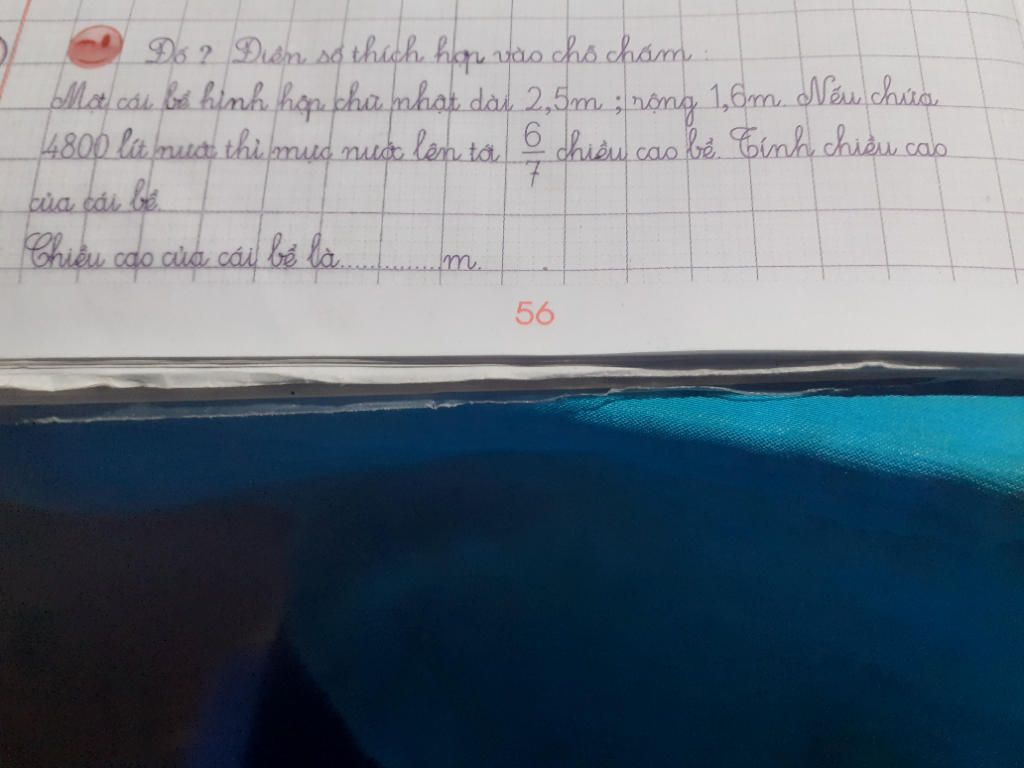 Đố? Điền số thích hợp vào chỗ chấm:
Một cái bể hình hộp chữ nhật dài 2,5m; rộng 1,6m. Nếu chứa
4800 lít nước thì mực nước lên tới 6/7 chiều cao bể. Tính chiều cao
của cái bể.
Chiều cao của cái bể là.............m.
56